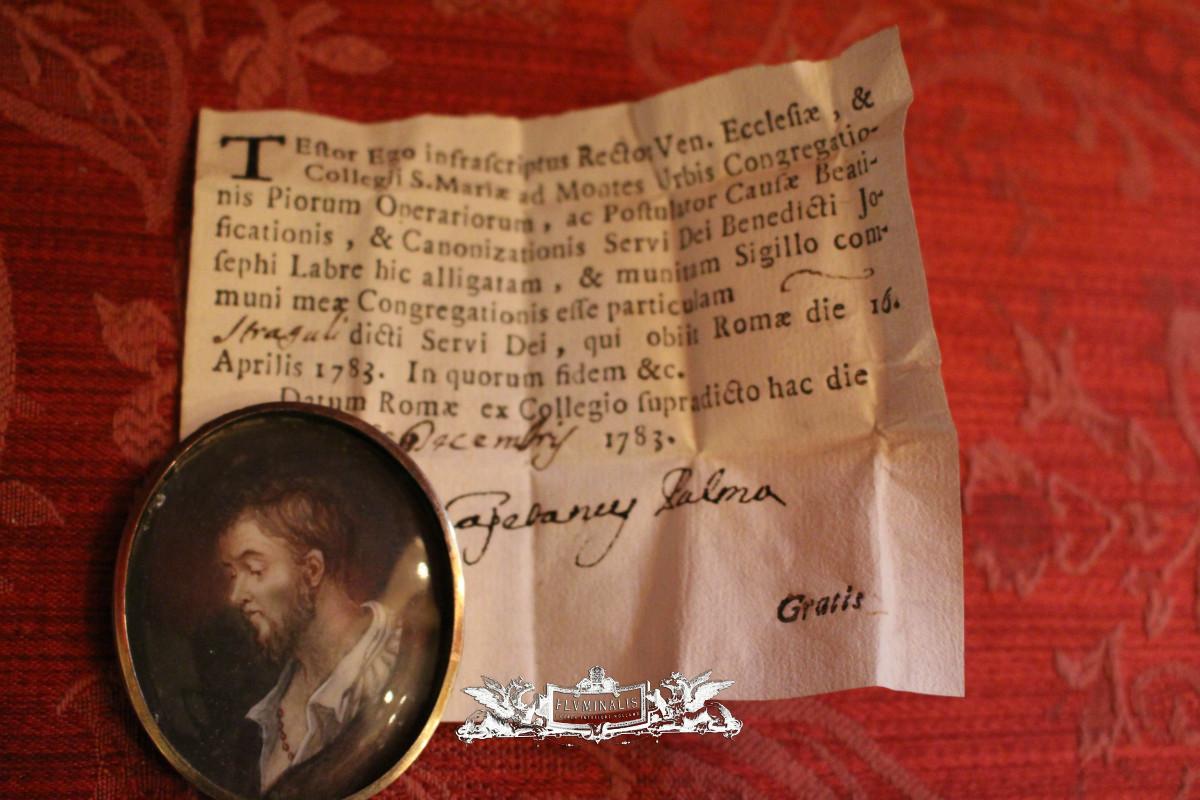 TEſtor Ego infraſcriptus Rector Ven. Eccleſiæ, &
Collegii S. Mariæ ad Montes Urbis Congregatio-
nis Piorum Operariorum, ac Poſtulator Cauſæ Beati-
ficationis, & Canonizationis Servi Dei Benedicti Jo-
ſephi Labre hic alligatam, & munitam Sigillo com-
muni meæ Congregationis eſſe particulam
ſtraguli dicti Servi Dei, qui obiit Romæ die 16.
Aprilis 1783. In quorum fidem &c.
Datum Romæ ex Collegio ſupradicto hac die
Decembris 1783.
Palma
Gratis
FLVMINALIS